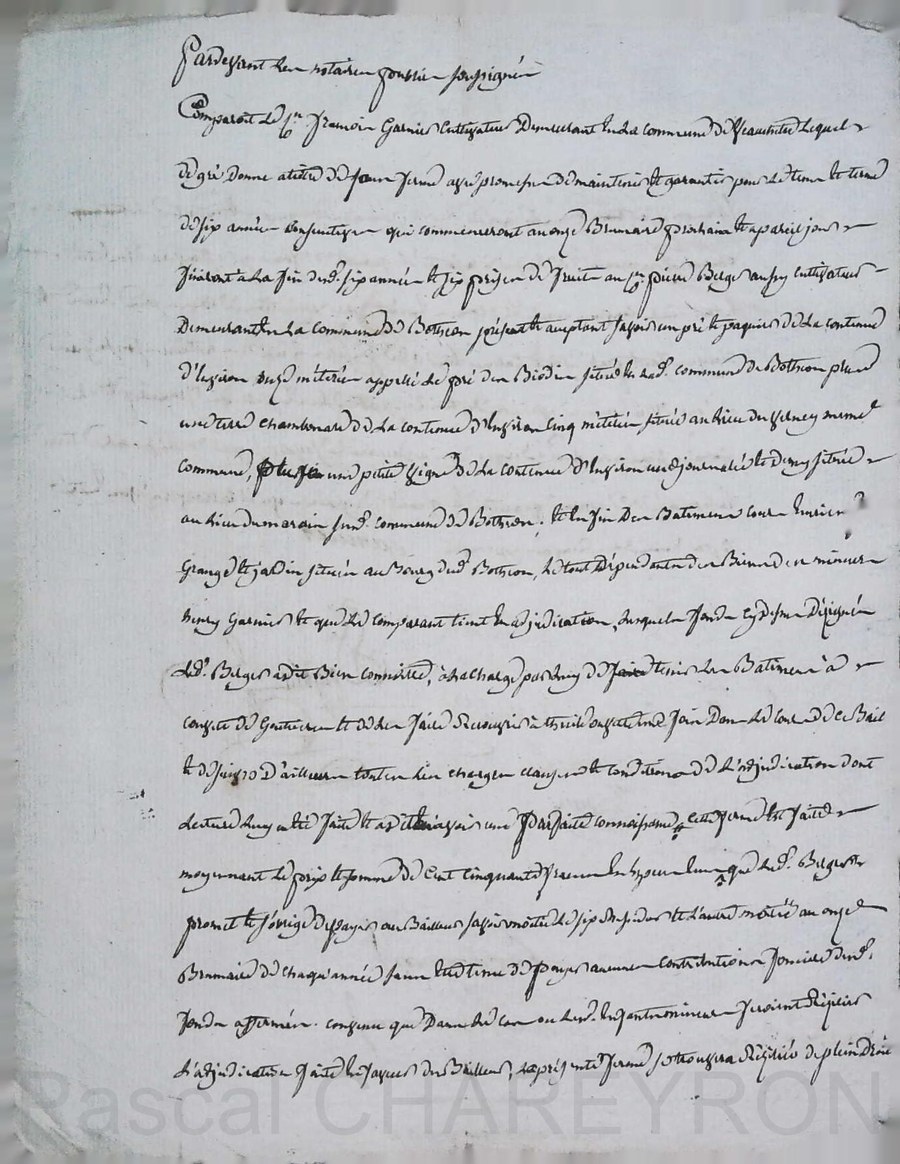 Pardevant les notaires publics soussignés
Comparoit le Sr François Garnier cultivateur Demeurant en la commune de lequel
de gré Donne a titre de ferme avec promesse de maintenir et garantir pour le tems et terme
de six années consecutives qui commenceront au onze Brumaire prochain et a pareil jour
finiront a la fin desd. six années et six prises de fruits au Sr pierre Berger aussy cultivateur
Demeurant en la commune de Bothéon présent et acceptant savoir un pré et paquier de la contenue
d'environ onze méterées appellé le pré des situé en lad. commune de Bothéon plus
une terre chambonare de la contenue d'environ cinq méterées située au lieu du verney meme
commune, plus une petite vigne de la contenue d'environ une journalée et demy située
au lieu du marais susd. commune de Bothéon, et enfin Des Batimens cour
Grange et jardin situés au Bourg dud. Bothéon, le tout Dépendants des Biens des mineurs
henry Garnier et que le comparant tient en adjudication, lesquels fonds cy dessus Désignés
led. Berger a dit Bien connoitre, a la charge par luy de faire tenir les Batimens à
couvert de Goutieres et de les faire recouvrir à thuile une fois Dans le cours de ce Bail
et de suivre D'ailleurs toutes les charges clauses et conditions de l'adjudication dont
lecture luy a été faite et a dit avoir une parfaite connoissance, cette ferme est faite
moyennant le prix et somme de cent cinquante francs que led. Berger
promet et s'oblige de payer au Bailleur savoir moitié le six et l'autre moitié au onze
Brumaire de chaque année sans etre tenu de payer aucunes contributions foncieres desd.
fonds affermés. convenu que Dans le cas ou lesd. enfants mineurs feroient Résilier
l'adjudication faite en faveur du Bailleur, la présente ferme se trouvera Résiliée de plein Droit
Pascal CHAREYRON